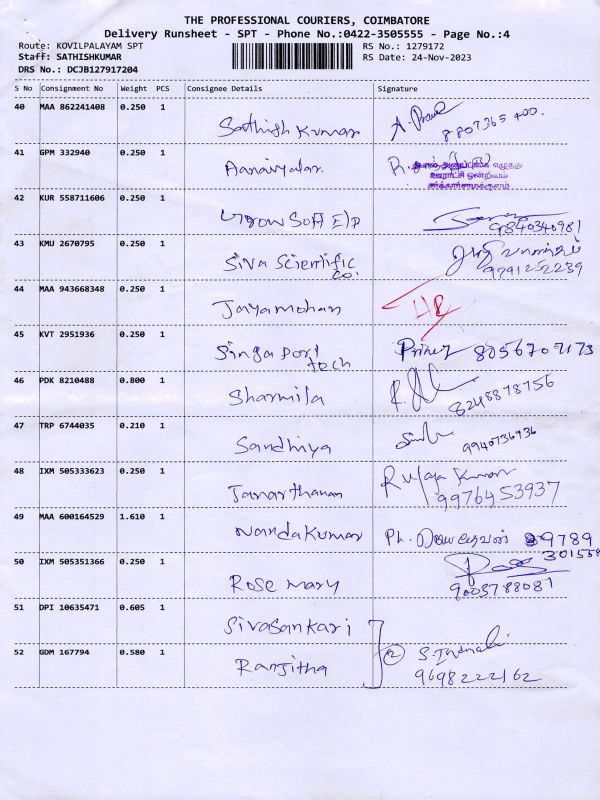 THE PROFESSIONAL COURIERS, COIMBATORE
Delivery Runsheet - SPT - Phone No.:0422-3505555 - Page No.:4
Route: KOVILPALAYAM SPT
RS No.: 1279172
Staff: SATHISHKUMAR
RS Date: 24-Nov-2023
DRS No.: DCJB127917204
S No Consignment No Weight PCS Consignee Details Signature
40 MAA 862241408 0.250 1 Sathish Kumar
8807365400
41 GPM 332940 0.250 1 R.
எழுதது
ஊராட்சி ஒன்றியம்
சர்க்கார்சாமக்குளம்
42 KUR 558711606 0.250 1
9840340981
43 KMU 2670795 0.250 1 Siva Scientific
Co.
9791252239
44 MAA 943668348 0.250 1 Jayamohan
45 KVT 2951936 0.250 1 Singaport
tech
8056709173
46 PDK 8210488 0.800 1 Sharmila
8248878756
47 TRP 6744035 0.210 1 Sandhiya
9940736936
48 IXM 505333623 0.250 1 Janarthanan
9976453937
49 MAA 600164529 1.610 1 Nandakumar Ph. 9789
50 IXM 505351366 0.250 1 Rose mary
9003788081
51 DPI 10635471 0.605 1 Sivasankari
52 GDM 167794 0.580 1 Ranjitha
2
9698222162